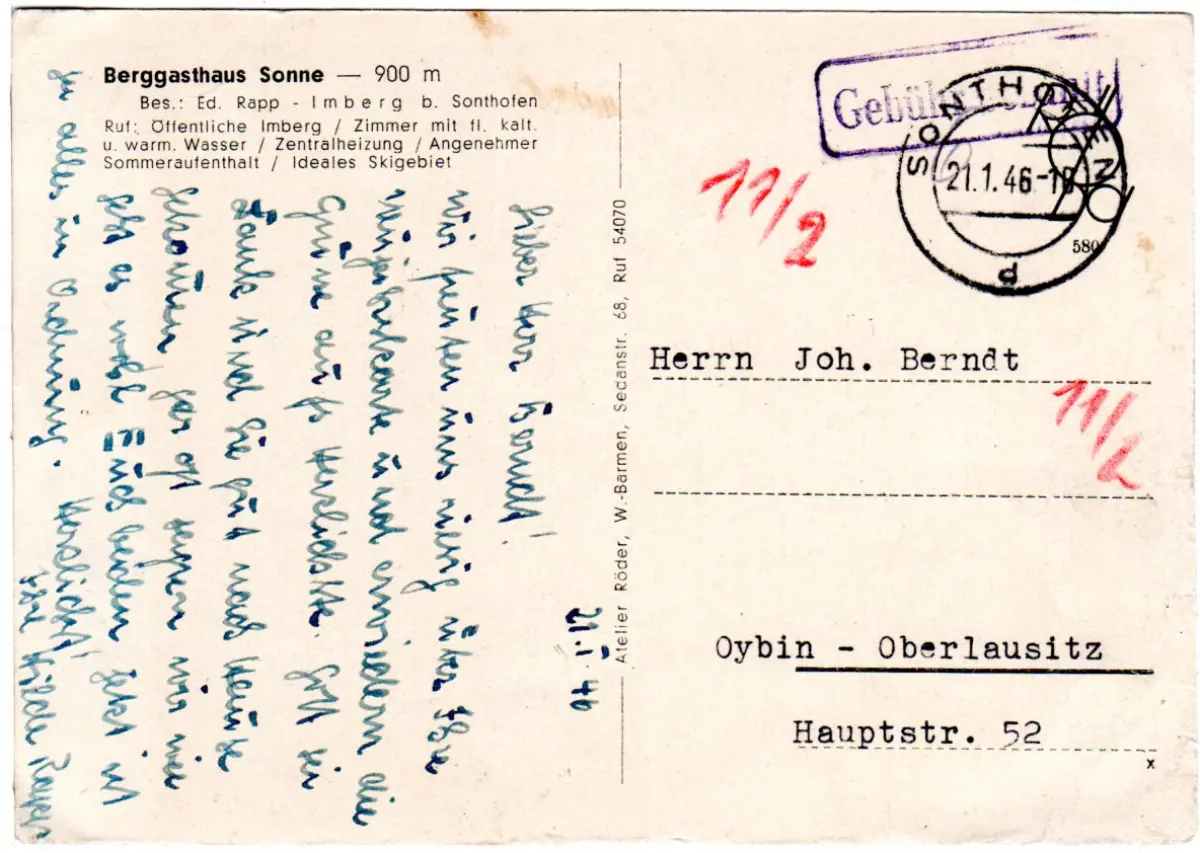 Berggasthaus Sonne — 900 m
Bes.: Ed. Rapp - Imberg b. Sonthofen
Ruf: Öffentliche Imberg / Zimmer mit fl. kalt.
u. warm. Wasser / Zentralheizung / Angenehmer
Sommeraufenthalt / Ideales Skigebiet
21.I.46
Lieber Herr Berndt!
Wir freuten uns riesig über Ihre
Neujahrskarte und erwidern die
Grüsse aufs Herzlichste. Gott sei
Dank sind Sie gut nach Hause
gekommen. oft sagen wir wie
geht es wohl Euch beiden. Jetzt ist
ja alles in Ordnung. Herzlichst!
Ihre Hilde Rapp
Atelier Röder, W.-Barmen, Sedanstr. 68, Ruf 54070
Gebühr
SONTHOFEN
21.1.46-18
580
d
11/2
Herrn Joh. Berndt
11/2
Oybin - Oberlausitz
Hauptstr. 52
x